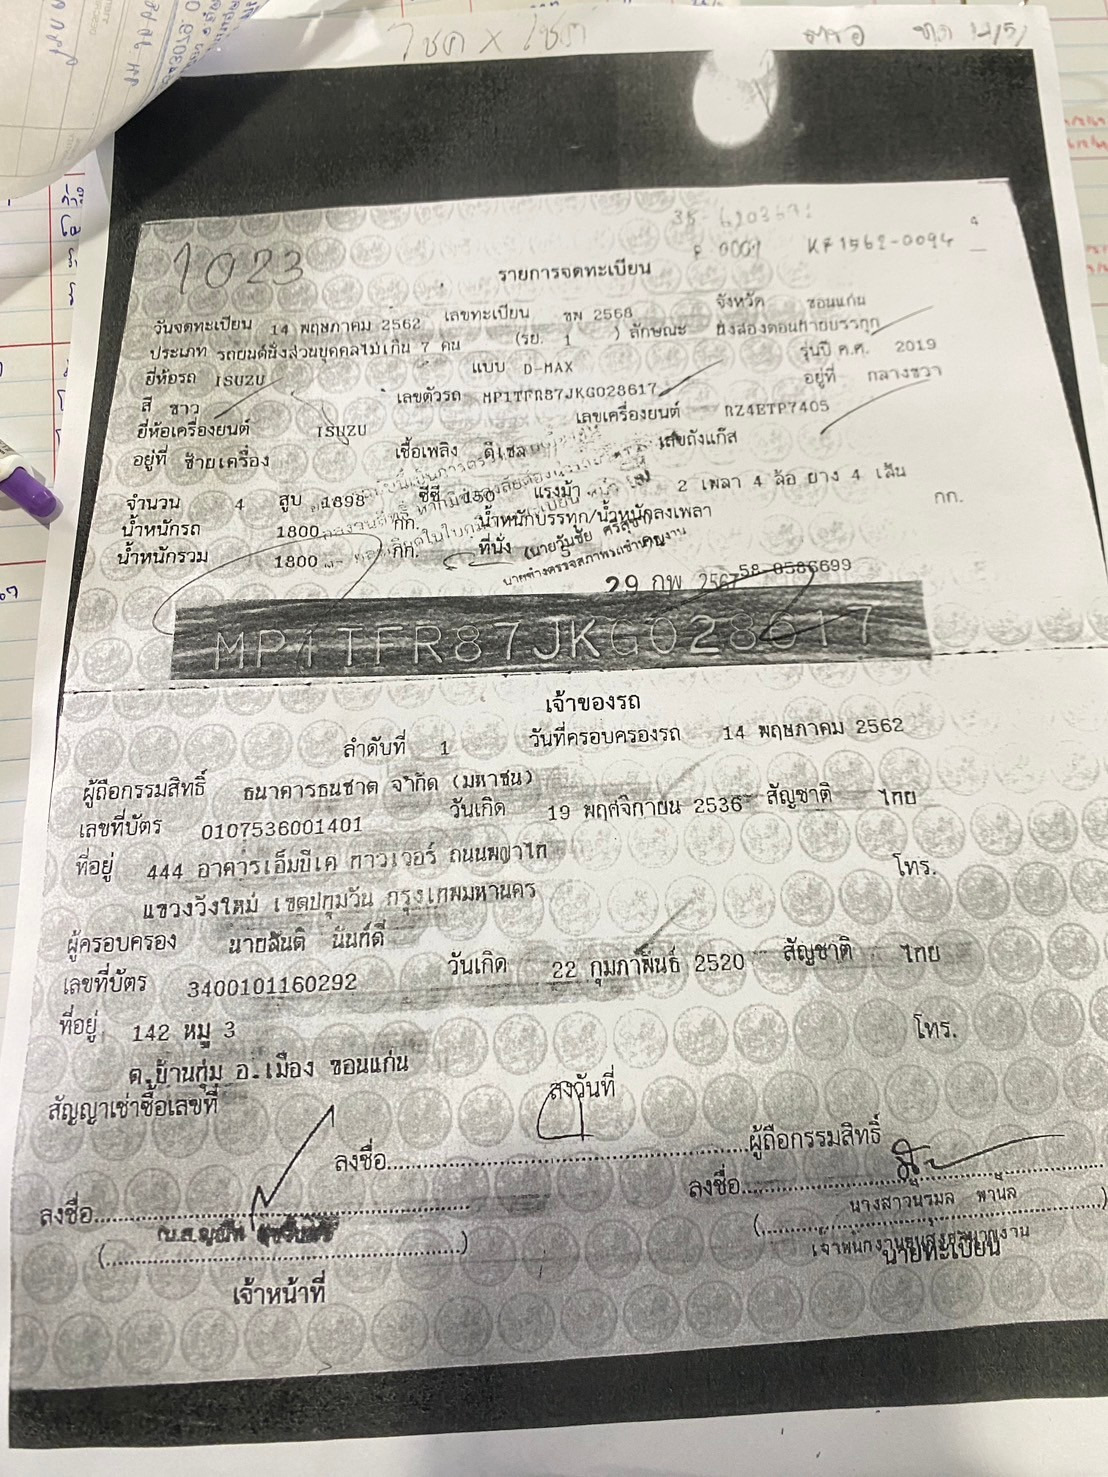 โชค x โชค
35-620367
F 0009 KF1562-0094
1023
รายการจดทะเบียน
วันจดทะเบียน 14 พฤษภาคม 2562 เลขทะเบียน ขพ 2568 จังหวัด ขอนแก่น
ประเภท รถยนต์นั่งส่วนบุคคลไม่เกิน 7 คน (รย. 1 ) ลักษณะ นั่งสองตอนท้ายบรรทุก
ยี่ห้อรถ ISUZU แบบ D-MAX รุ่นปี ค.ศ. 2019
สี ขาว เลขตัวรถ MP1TFR87JKG028617 อยู่ที่ กลางขวา
ยี่ห้อเครื่องยนต์ ISUZU เลขเครื่องยนต์ RZ4ETP7405
อยู่ที่ ซ้ายเครื่อง เชื้อเพลิง ดีเซล เลขถังแก๊ส
จำนวน 4 สูบ 1898 ซีซี 150 แรงม้า 2 เพลา 4 ล้อ ยาง 4 เส้น
น้ำหนักรถ 1800 กก. น้ำหนักบรรทุก/น้ำหนักลงเพลา กก.
น้ำหนักรวม 1800 กก. ที่นั่ง
นายช่างตรวจสภาพรถชำนาญงาน
29 กพ 2567 58-0586699
MP1TFR87JKG028617
เจ้าของรถ
ลำดับที่ 1 วันที่ครอบครองรถ 14 พฤษภาคม 2562
ผู้ถือกรรมสิทธิ์ ธนาคารธนชาต จำกัด (มหาชน)
เลขที่บัตร 0107536001401 วันเกิด 19 พฤศจิกายน 2536 สัญชาติ ไทย
ที่อยู่ 444 อาคารเอ็มบีเค ทาวเวอร์ ถนนพญาไท โทร.
แขวงวังใหม่ เขตปทุมวัน กรุงเทพมหานคร
ผู้ครอบครอง นายสันติ นันท์ดี
เลขที่บัตร 3400101160292 วันเกิด 22 กุมภาพันธ์ 2520 สัญชาติ ไทย
ที่อยู่ 142 หมู่ 3 โทร.
ต.บ้านทุ่ม อ.เมือง ขอนแก่น
สัญญาเช่าซื้อเลขที่ ลงวันที่
ลงชื่อ ผู้ถือกรรมสิทธิ์
ลงชื่อ ลงชื่อ
นางสาวนิรมล
เจ้าพนักงานขนส่งชำนาญงาน
เจ้าหน้าที่ นายทะเบียน